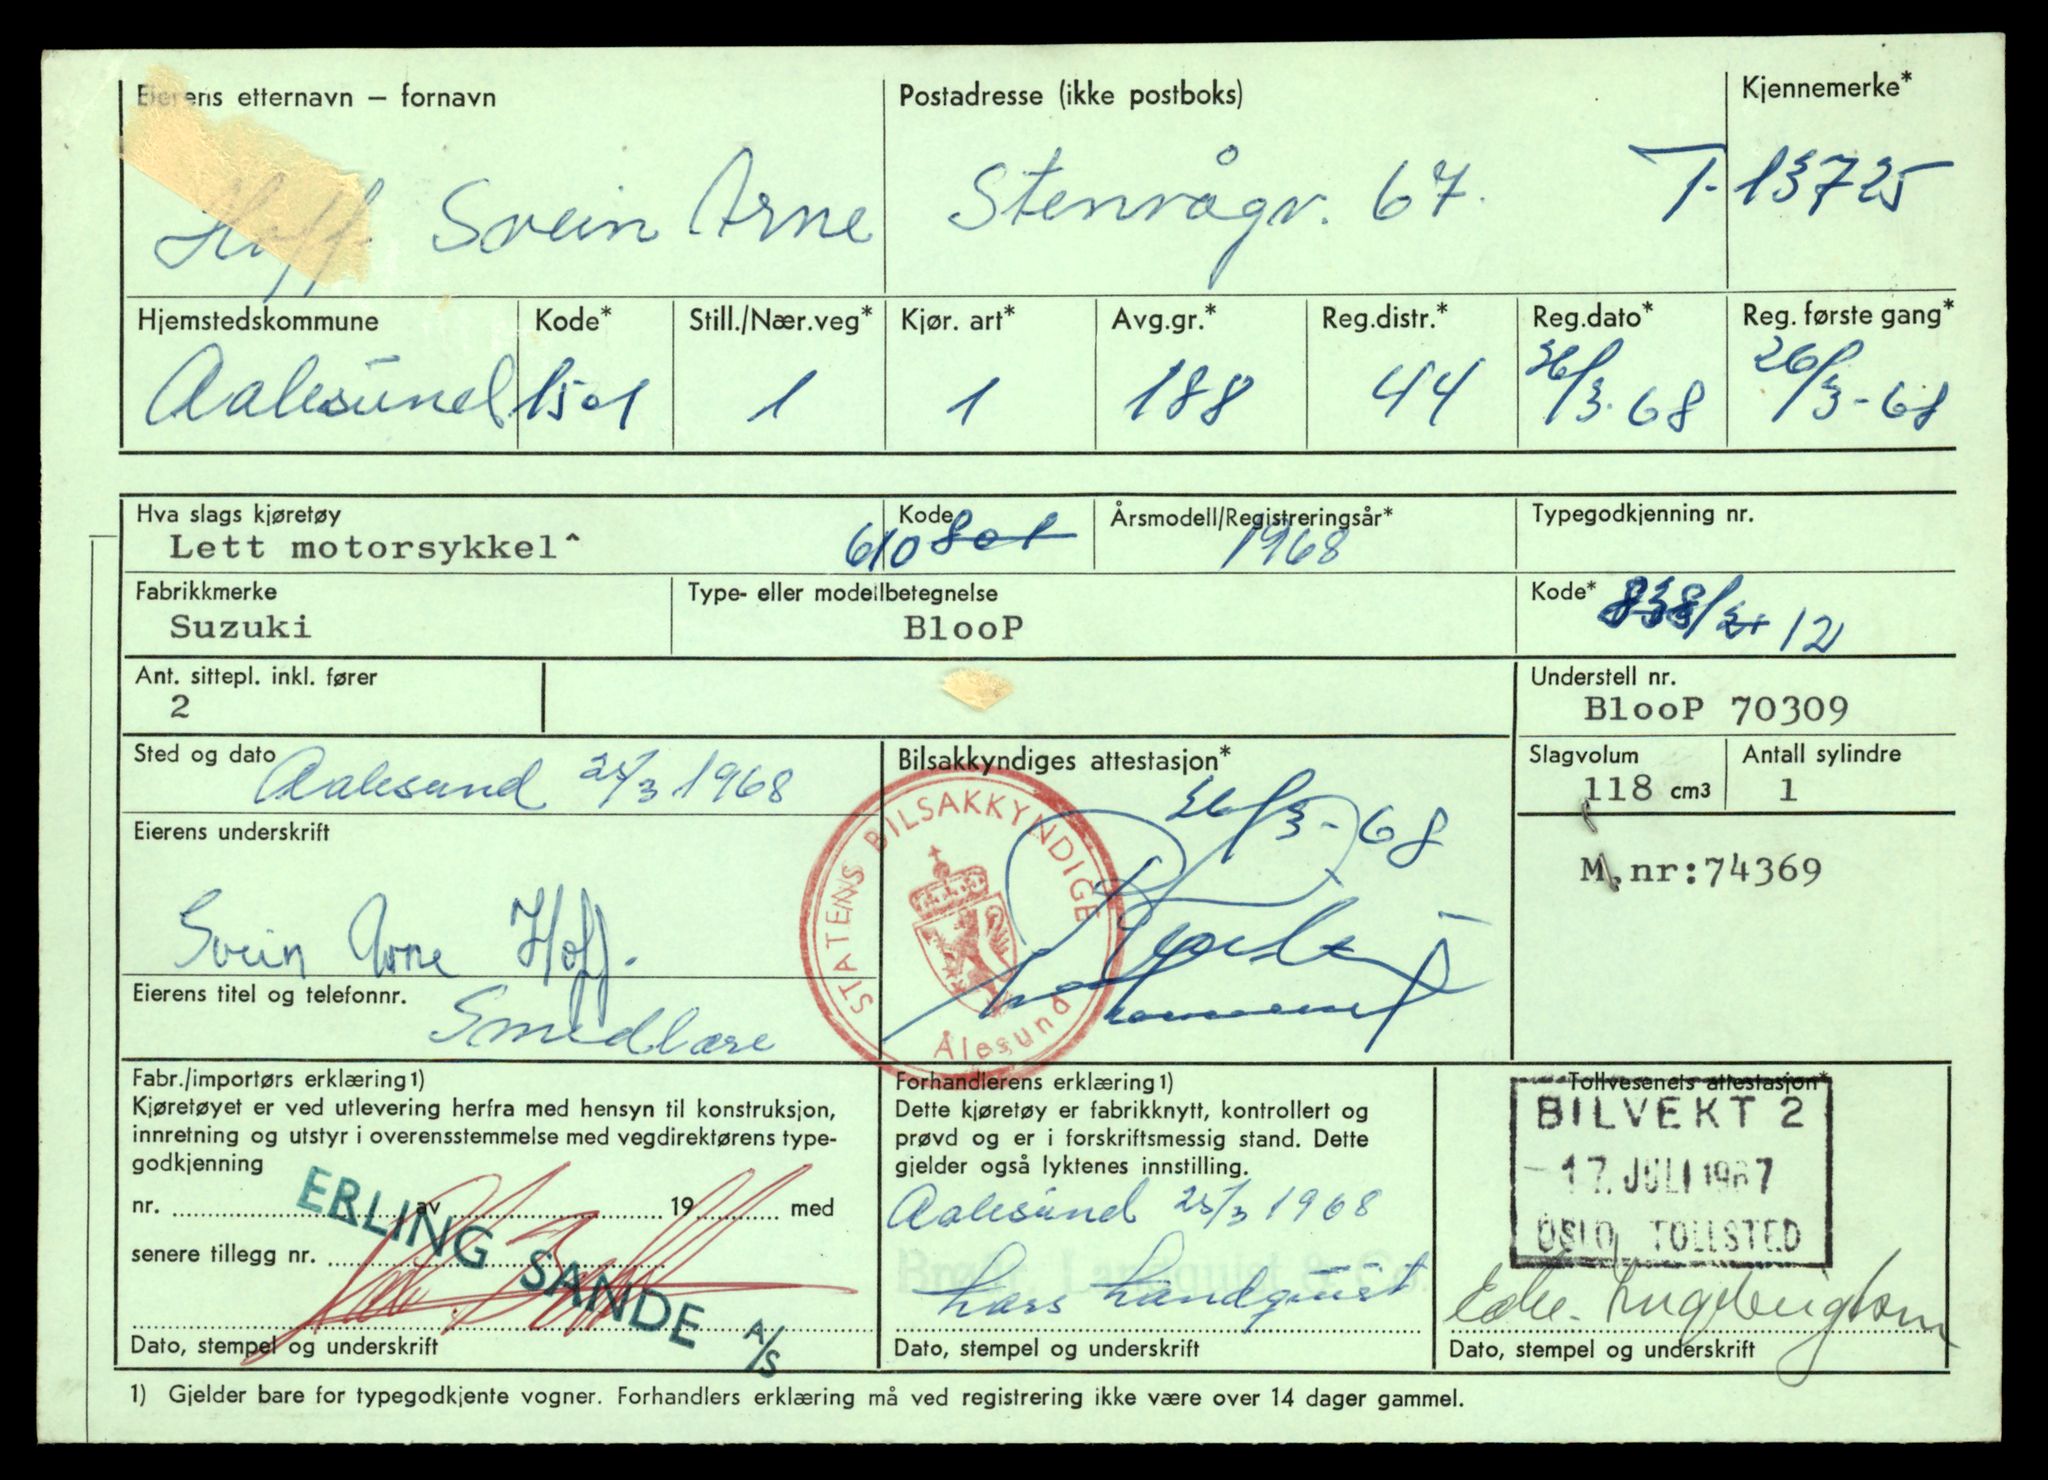 Eierens etternavn – fornavn
Hoff Svein Arne
Postadresse (ikke postboks)
Stenvågv. 67.
Kjennemerke*
T-13725
Hjemstedskommune
Aalesund
Kode*
1501
Still./Nær.veg*
1
Kjør. art*
1
Avg.gr.*
188
Reg.distr.*
44
Reg.dato*
26/3-68
Reg. første gang*
26/3-68
Hva slags kjøretøy
Lett motorsykkel^
Kode
610 801
Årsmodell/Registreringsår*
1968
Typegodkjenning nr.
Fabrikkmerke
Suzuki
Type- eller modellbetegnelse
BlooP
Kode*
12
Ant. sittepl. inkl. fører
2
Understell nr.
BlooP 70309
Sted og dato
Aalesund 25/3 1968
Bilsakkyndiges attestasjon*
26/3-68
STATENS BILSAKKYNDIGE
Ålesund
Slagvolum
118 cm3
Antall sylindre
1
M.nr:74369
Eierens underskrift
Svein Arne Hoff.
Eierens titel og telefonnr.
Smedlære
Fabr./importørs erklæring1)
Kjøretøyet er ved utlevering herfra med hensyn til konstruksjon,
innretning og utstyr i overensstemmelse med vegdirektørens type-
godkjenning
nr. av 19 med
senere tillegg nr.
ERLING SANDE A/S
Dato, stempel og underskrift
Forhandlerens erklæring1)
Dette kjøretøy er fabrikknytt, kontrollert og
prøvd og er i forskriftsmessig stand. Dette
gjelder også lyktenes innstilling.
Aalesund 25/3 1968
Brødr. Landquist & Co.
Lars Landquist
Dato, stempel og underskrift
Tollvesenets attestasjon*
BILVEKT 2
-17. JULI 1967
OSLO TOLLSTED
Dato, stempel og underskrift
1) Gjelder bare for typegodkjente vogner. Forhandlers erklæring må ved registrering ikke være over 14 dager gammel.